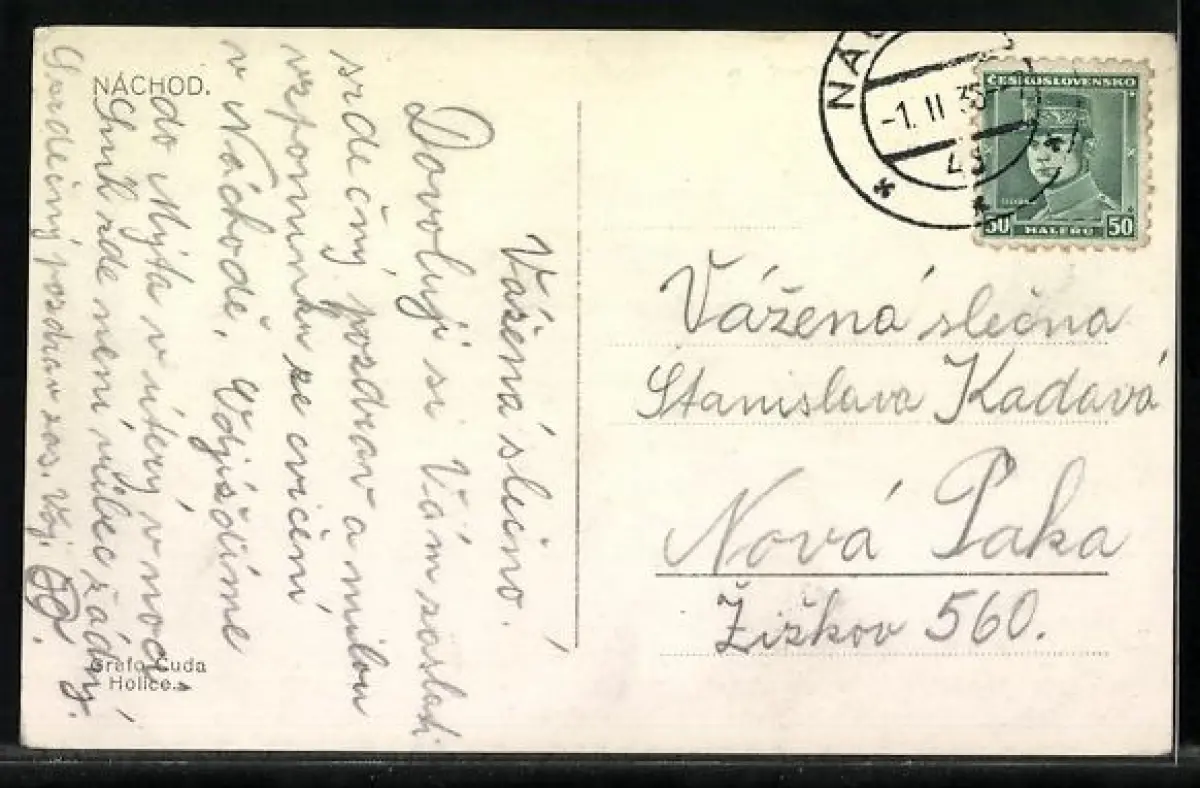 NÁCHOD.
Vážená slečno.
Dovoluji si Vám zaslati
srdečný pozdrav a milou
vzpomínku ze cvičení
v Náchodě.
do Mýta v úterý v noci
zde není vůbec žádný.
Srdečný pozdrav
Grafo Čuda
Holice.
NÁC
-1. II 35
ČESKOSLOVENSKO
50 HALÉŘŮ 50
Vážená slečna
Stanislava Kadavá
Nová Paka
Žižkov 560.